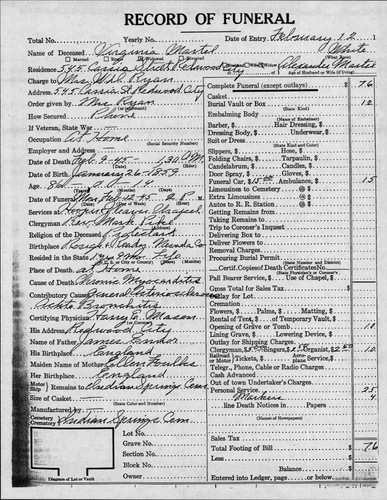 RECORD OF FUNERAL
Total No. Yearly No. Date of Entry February 12 1
Name of Deceased Virginia Martel White
Married Single Widow Alexander Martel
Residence 545 Cassia Street Redwood City
Age of Husband or Wife (if living)
Charge to Mrs. Will Ryan
Address 545 Cassia St. Redwood City
Order given by Mrs Ryan
How Secured Phone
If Veteran, State War
Occupation at Home
(Social Security Number)
Employer and Address
Date of Death Feb. 9-45- 1:30 A M.
Date of Birth January 26-1859
Age 86
Date of Funeral Feb. 12-45 2 P M.
Services at Chapel
Clergyman Rev. Mark
Religion of the Deceased Protestant
Birthplace Rough & Ready, Nevada Co.
Resided in the State Life
Place of Death at Home
Cause of Death Chronic Myocarditis
Contributory Cause General Arteriosclerosis
Acute Bronchitis
Certifying Physician Harry A. Mason
His Address Redwood City
Name of Father James Ennor
His Birthplace England
Maiden Name of Mother Ellen Foulkes
Her Birthplace England
Motor Ship Remains to Indian Springs Cem.
Size of Casket
(State Color and Number)
Manufactured by
Cemetery Crematory Indian Springs Cem.
Lot No.
Grave No.
Section No.
Block No.
Diagram of Lot or Vault Owner
Complete Funeral (except outlays) $ 76
Casket
Burial Vault or Box 12
(State Kind)
Embalming Body
(Name of Embalmer)
Barber, $ Hair Dressing, $
Dressing Body, $ Underwear, $
Suit or Dress
(State Kind and Color)
Slippers, $ Hose, $
Folding Chairs, $ Tarpaulin, $
Candelabrum, $ Candles, $
Door Spray, $ Gloves, $
Funeral Car, $ 15.00 Ambulance, $ 15
Limousines to Cemetery @ $
Extra Limousines @ $
Autos to R. R. Station @ $
Getting Remains from
Taking Remains to
Trip to Coroner's Inquest
Delivering Box to
Deliver Flowers to
Removal Charges
Procuring Burial Permit
(State Number and District)
Certif. Copies of Death Certificate No.
(State Physician's or Coroner's)
Pall Bearer Service, $ Use of Chapel, $
Gross Total for Sales Tax $
Outlay for Lot
Cremation
Flowers, $ Palms, $ Matting, $
Rental of Tent, $ of Temporary Vault, $
Opening of Grave or Tomb 10
Lining Grave, $ Lowering Device, $
Outlay for Shipping Charges
Clergyman, $ Singers, $ Organist, $ 10
Railroad Motor Tickets, $ Aeroplane Service, $
Telegr., Phone, Cable or Radio Charges
Cash Advanced
Out of town Undertaker's Charges
Personal Service 25
Markers 4
line Death Notices in Papers
Sales Tax
Total Footing of Bill $ 76
Less
Balance $
Entered into Ledger, page or below.